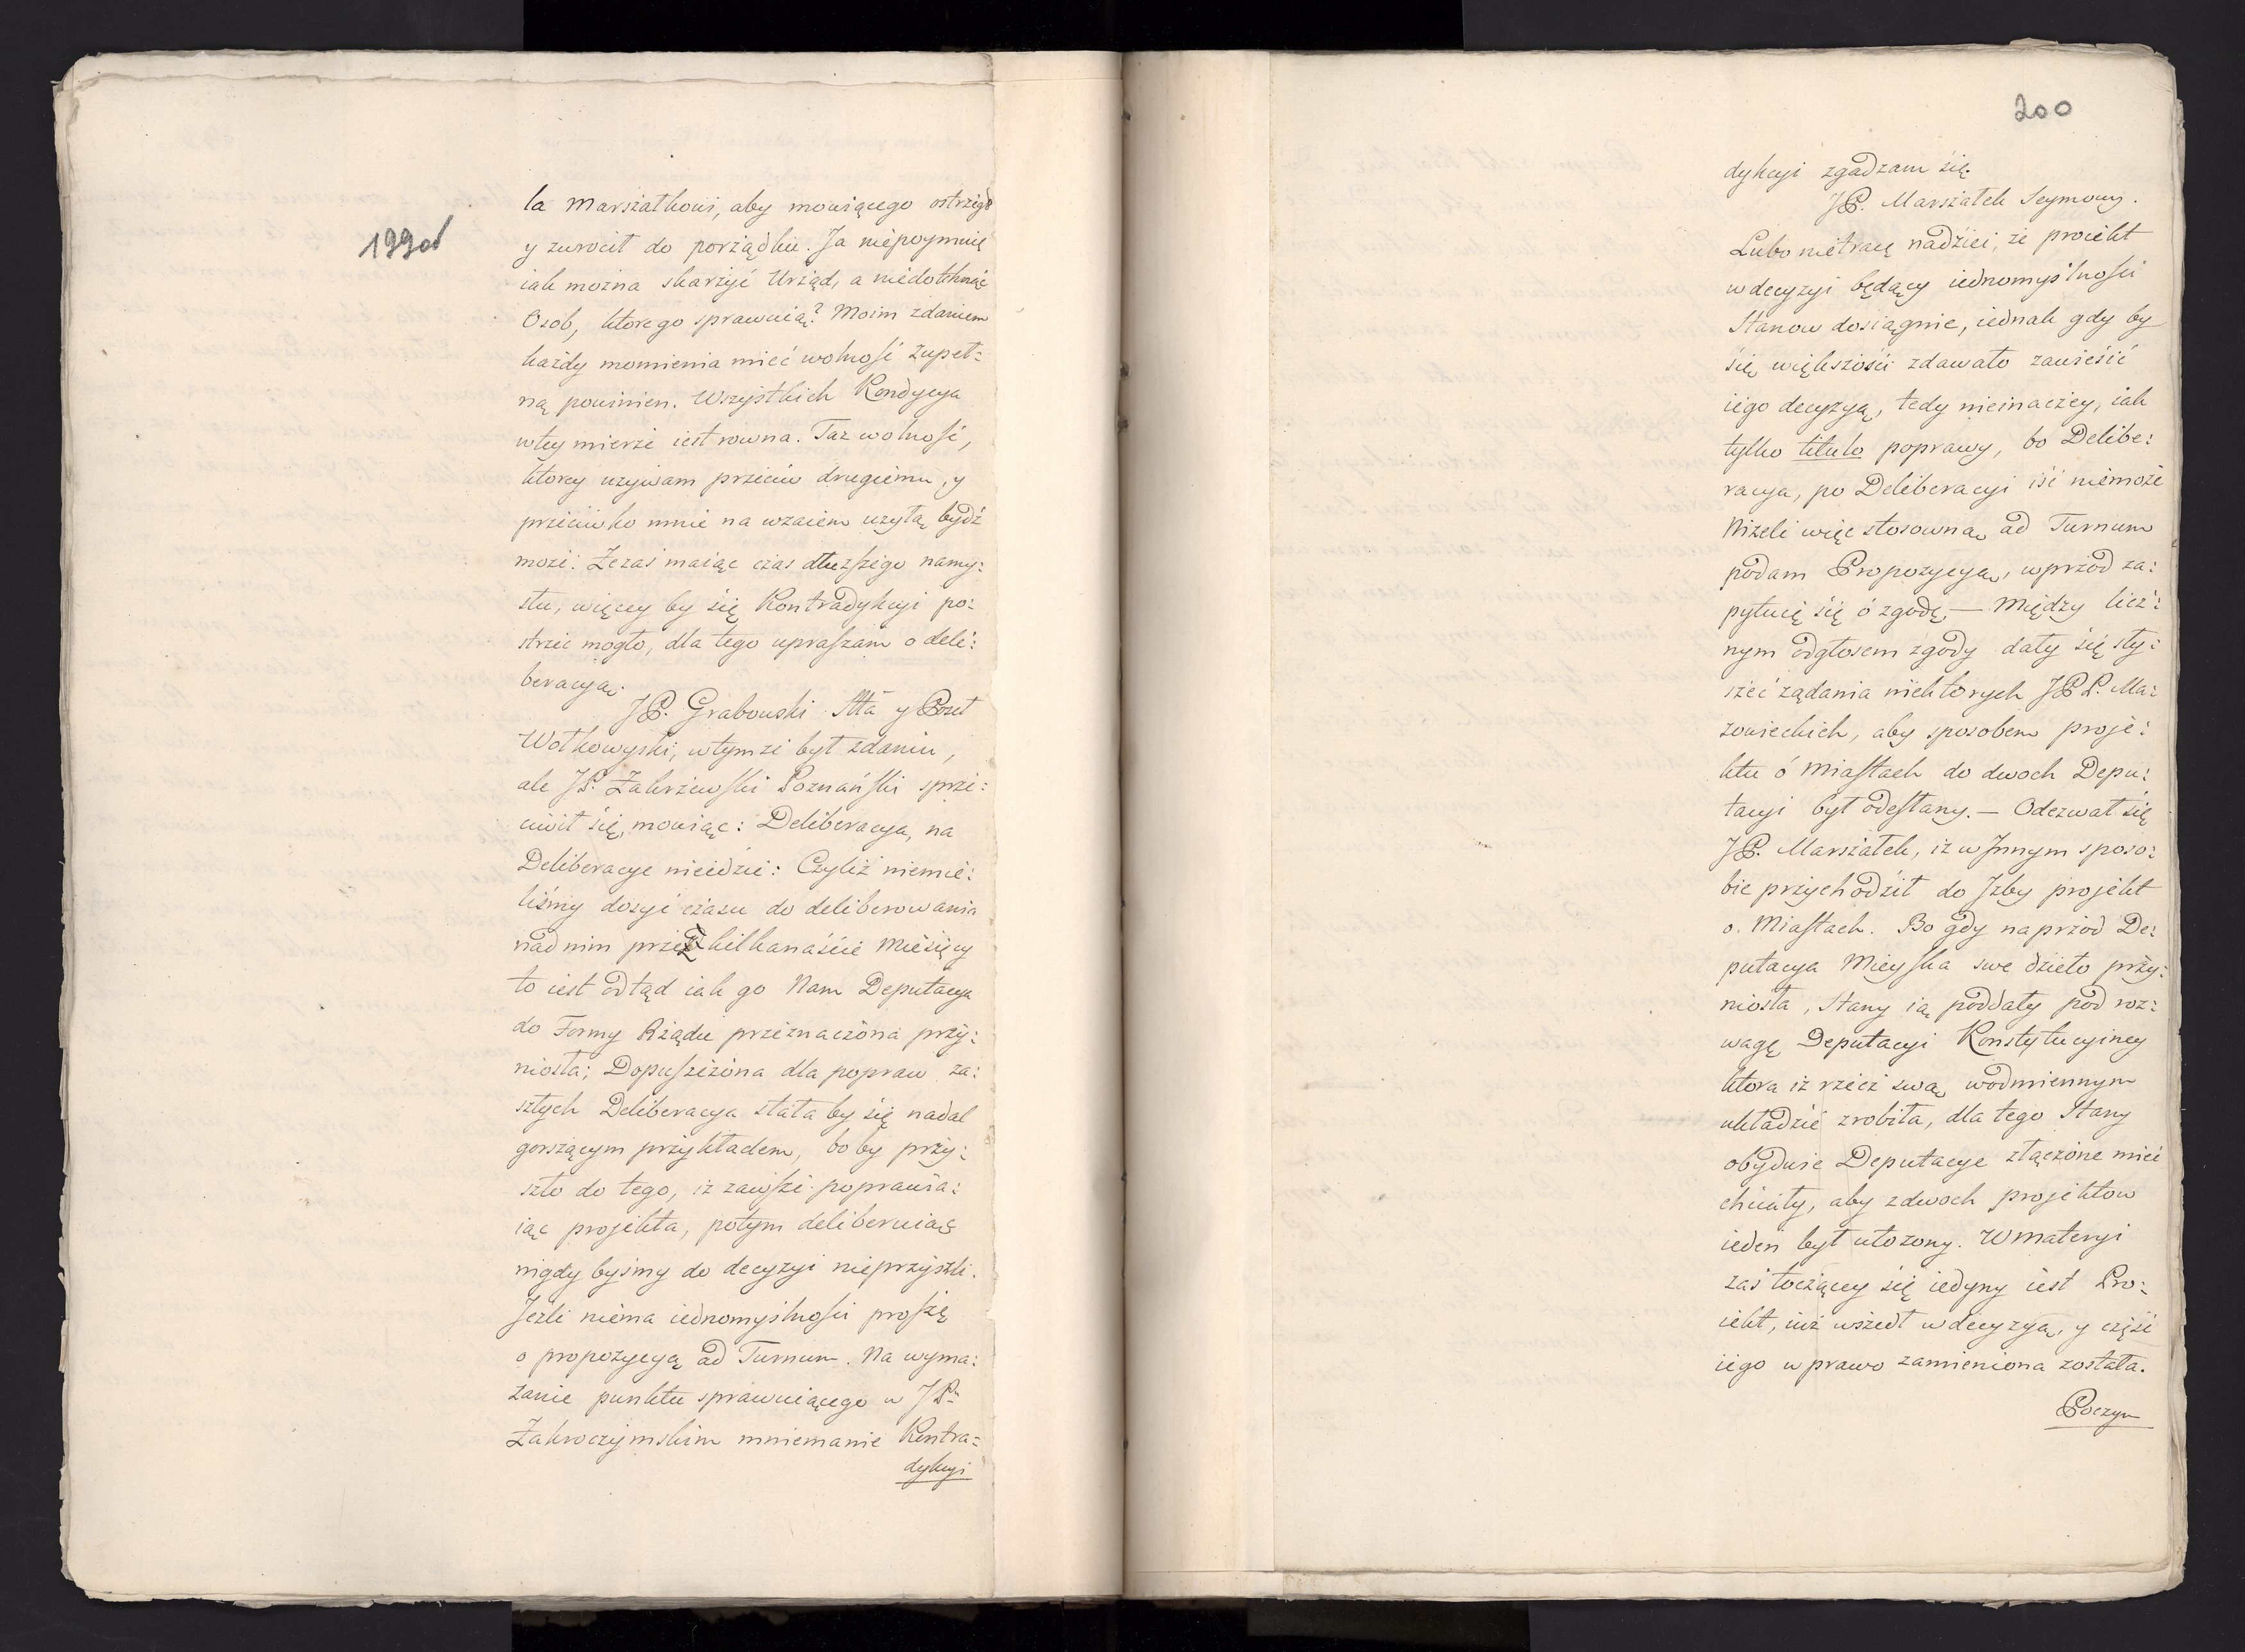 199od
la Marszałkowi, aby mowiącego ostrzegł
y zwrocił do porządku. Ja niepoymuię
iak można skarżyć Urząd, a niedotknąć
Osob, ktore go sprawuią? Moim zdaniem
każdy momienia mieć wolność zupeł:
ną powinien. Wszystkich Kondycya
wtey mierze iest rowna. Taz wolność,
ktorey uzywam przeciw drugiemu, y
przeciwko mnie na wzaiem uzytą bydź
może: Zezaś maiąc czas dłuzszego namy:
słu, więcey by się Kontradykcyi po:
strzec mogło, dla tego upraszam o deli:
beracyą.
JP. Grabowski Stta y Poseł
Wołkowyski, wtymze był zdaniu,
ale JP. Zakrzewski Poznański sprze:
ciwił się, mowiąc: Deliberacya, na
Deliberacye nieidzie: Czyliż niemie:
liśmy dosyć czasu do deliberowania
nad nim przez kilkanaście Miesięcy
to iest odtąd iak go Nam Deputacya
do Formy Rządu przeznaczona przy:
niosła; Dopuszczona dla popraw za:
szłych Deliberacya stała by się nadal
gorszącym przykładem, bo by przy:
szło do tego, iż zawsze poprawia:
iąc projekta, potym deliberuiąc
nigdy byśmy do decyzyi nieprzyszli.
Jeżli niema iednomyślności proszę
o propozycyą ad Turnum. Na wyma:
zanie punktu sprawuiącego w JP.
Zakroczymskim mniemanie Kontra=
dykcyi
200
dykcyi zgadzam się.
JP. Marszałek Seymowy.
Lubo nietracę nadziei, że proiekt
wdecyzyi będący iednomyślności
Stanow dosiągnie, iednak gdy by
się większości zdawało zawiesić
iego decyzyą, tedy nieinaczey, iak
tylko titulo poprawy, bo Delibe:
racya, po Deliberacyi iść niemoże
Niżeli więc stosowną ad Turnum
podam Propozycyą, wprzod za:
pytuię się o zgodę, — Między licz:
nym odgłosem zgody dały się sły:
szeć żądania niektorych JPP. Ma:
zowieckich, aby sposobem proje:
ktu o Miastach do dwoch Depu:
tacyi był odesłany. — Odezwał się
JP. Marszałek, iż w Jnnym sposo:
bie przychodził do Jzby projekt
o. Miastach. Bo gdy naprzod De:
putacya Mieyska swe dzieło przy:
niosła, Stany ią poddały pod roz:
wagę Deputacyi Konstytucyiney
ktora iż rzecz swą wodmiennym
układzie zrobiła, dla tego Stany
obydwie Deputacye złączone mieć
chciały, aby zdwoch projektow
ieden był ułozony. Wmateryi
zaś toczącey się iedyny iest Pro:
iekt, iuż wszedł wdecyzyą, y część
iego w prawo zamieniona została.
Poczym